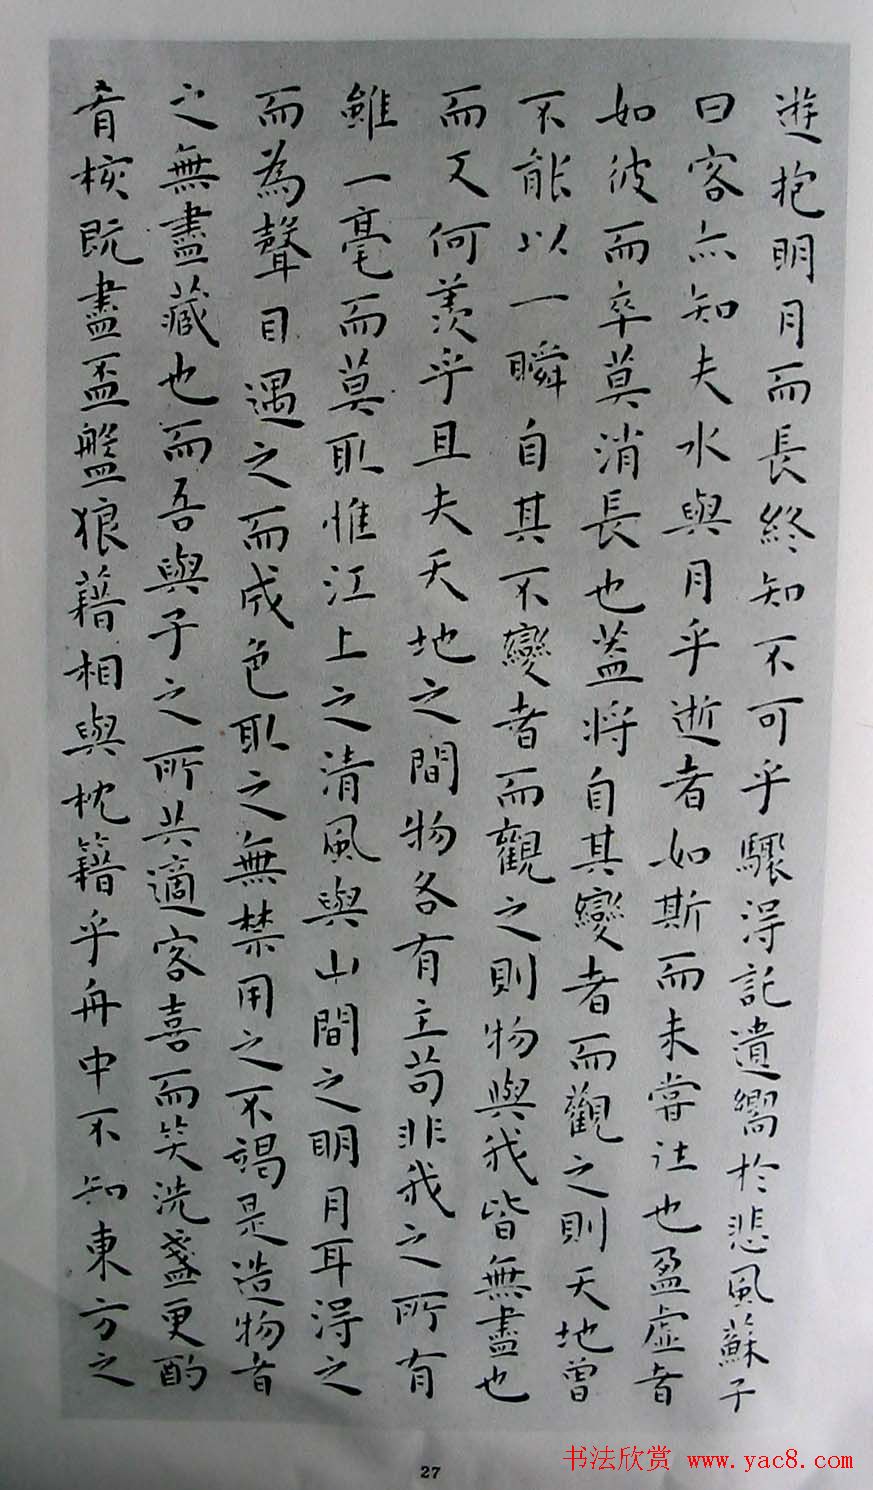 遊抱明月而長終知不可乎驟得託遺嚮於悲風蘇子
曰客亦知夫水與月乎逝者如斯而未嘗往也盈虛者
如彼而卒莫消長也蓋將自其變者而觀之則天地曾
不能以一瞬自其不變者而觀之則物與我皆無盡也
而又何羨乎且夫天地之間物各有主苟非我之所有
雖一毫而莫取惟江上之清風與山間之明月耳得之
而為聲目遇之而成色取之無禁用之不竭是造物者
之無盡藏也而吾與子之所共適客喜而笑洗盞更酌
肴核既盡盃盤狼藉相與枕籍乎舟中不知東方之
书法欣赏 www.yac8.com
27